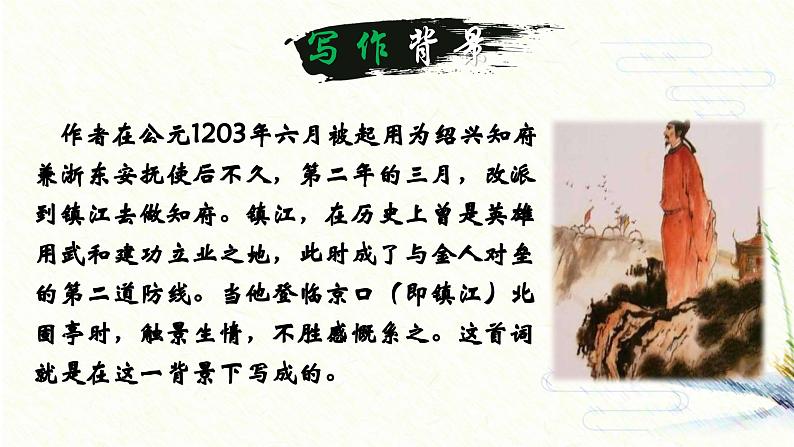 写作背景
作者在公元1203年六月被起用为绍兴知府
兼浙东安抚使后不久，第二年的三月，改派
到镇江去做知府。镇江，在历史上曾是英雄
用武和建功立业之地，此时成了与金人对垒
的第二道防线。当他登临京口（即镇江）北
固亭时，触景生情，不胜感慨系之。这首词
就是在这一背景下写成的。